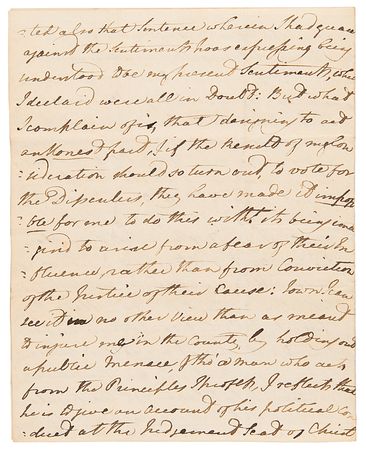 =ted also that Sentence wherein I had guar
against the Sentiments how expressing being
understood to be my present Sentiments, whi
I declard were all in Doubt: But what
I complain of is, that designing to act
an honest part, & if the Result of my Con
=sideration should so turn out, to vote for
the Dissenters, they have made it impos
ble for me to do this with its being ima
=gind to arise from a fear of their In
=fluence, rather than from Conviction
of the Justice of their Cause: I own I can
see it in no other view than as meant
to injure me in the County, by holding out
a public menace, & tho' a man who acts
from the Principles I profess, I reflects that
he is to give an account of his political Con
=duct at the Judgement Seat of Christ